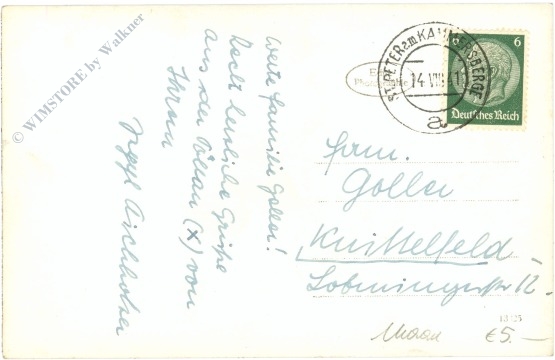 © WIMSTORE by Walkner
Werte Familie Goller!
Recht herzliche Grüße
aus der Pölsau (x) von
Ihrem
Aichholzer
ST. PETER am KAMMERSBERGE
14. VIII
a
6
6
Deutsches Reich
Fam.
Goller
Knittelfeld
Lobmingerstr 12.
13/25
€5.-